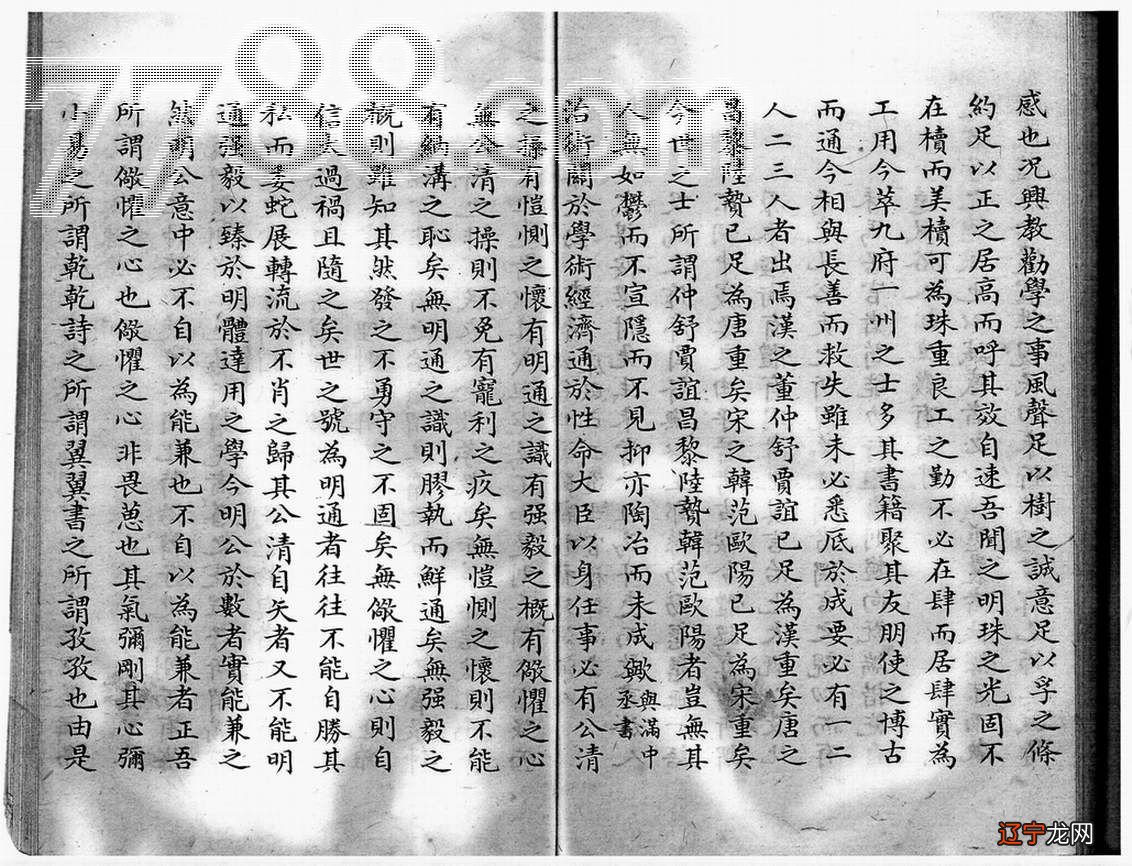 感也况興教勸學之事風聲足以樹之誠意足以孚之條
約足以正之居高而呼其效自速吾聞之明珠之光固不
在櫝而美櫝可為珠重良工之勤不必在肆而居肆實為
工用今萃九府一州之士多其書籍聚其友朋使之博古
而通今相與長善而救失雖未必悉底於成要必有一二
人二三人者出焉漢之董仲舒賈誼已足為漢重矣唐之
昌黎陸贄已足為唐重矣宋之韓范歐陽已足為宋重矣
今世之士所謂仲舒賈誼昌黎陸贄韓范歐陽者豈無其
人無如鬱而不宣隱而不見抑亦陶冶而未成歟與滿中丞書
治術關於學術經濟通於性命大臣以身任事必有公清
之操有愷惻之懷有明通之識有强毅之概有儆懼之心
無公清之操則不免有寵利之疚矣無愷惻之懷則不能
有納溝之恥矣無明通之識則膠執而鮮通矣無强毅之
概則雖知其然發之不勇守之不固矣無儆懼之心則自
信太過禍且隨之矣世之號為明通者往往不能自勝其
私而委蛇展轉流於不肖之歸其公清自矢者又不能明
通强毅以臻於明體達用之學今明公於數者實能兼之
然明公意中必不自以為能兼也不自以為能兼者正吾
所謂儆懼之心也儆懼之心非畏葸也其氣彌剛其心彌
小易之所謂乾乾詩之所謂翼翼書之所謂孜孜也由是
7788.com
辽宁龙网